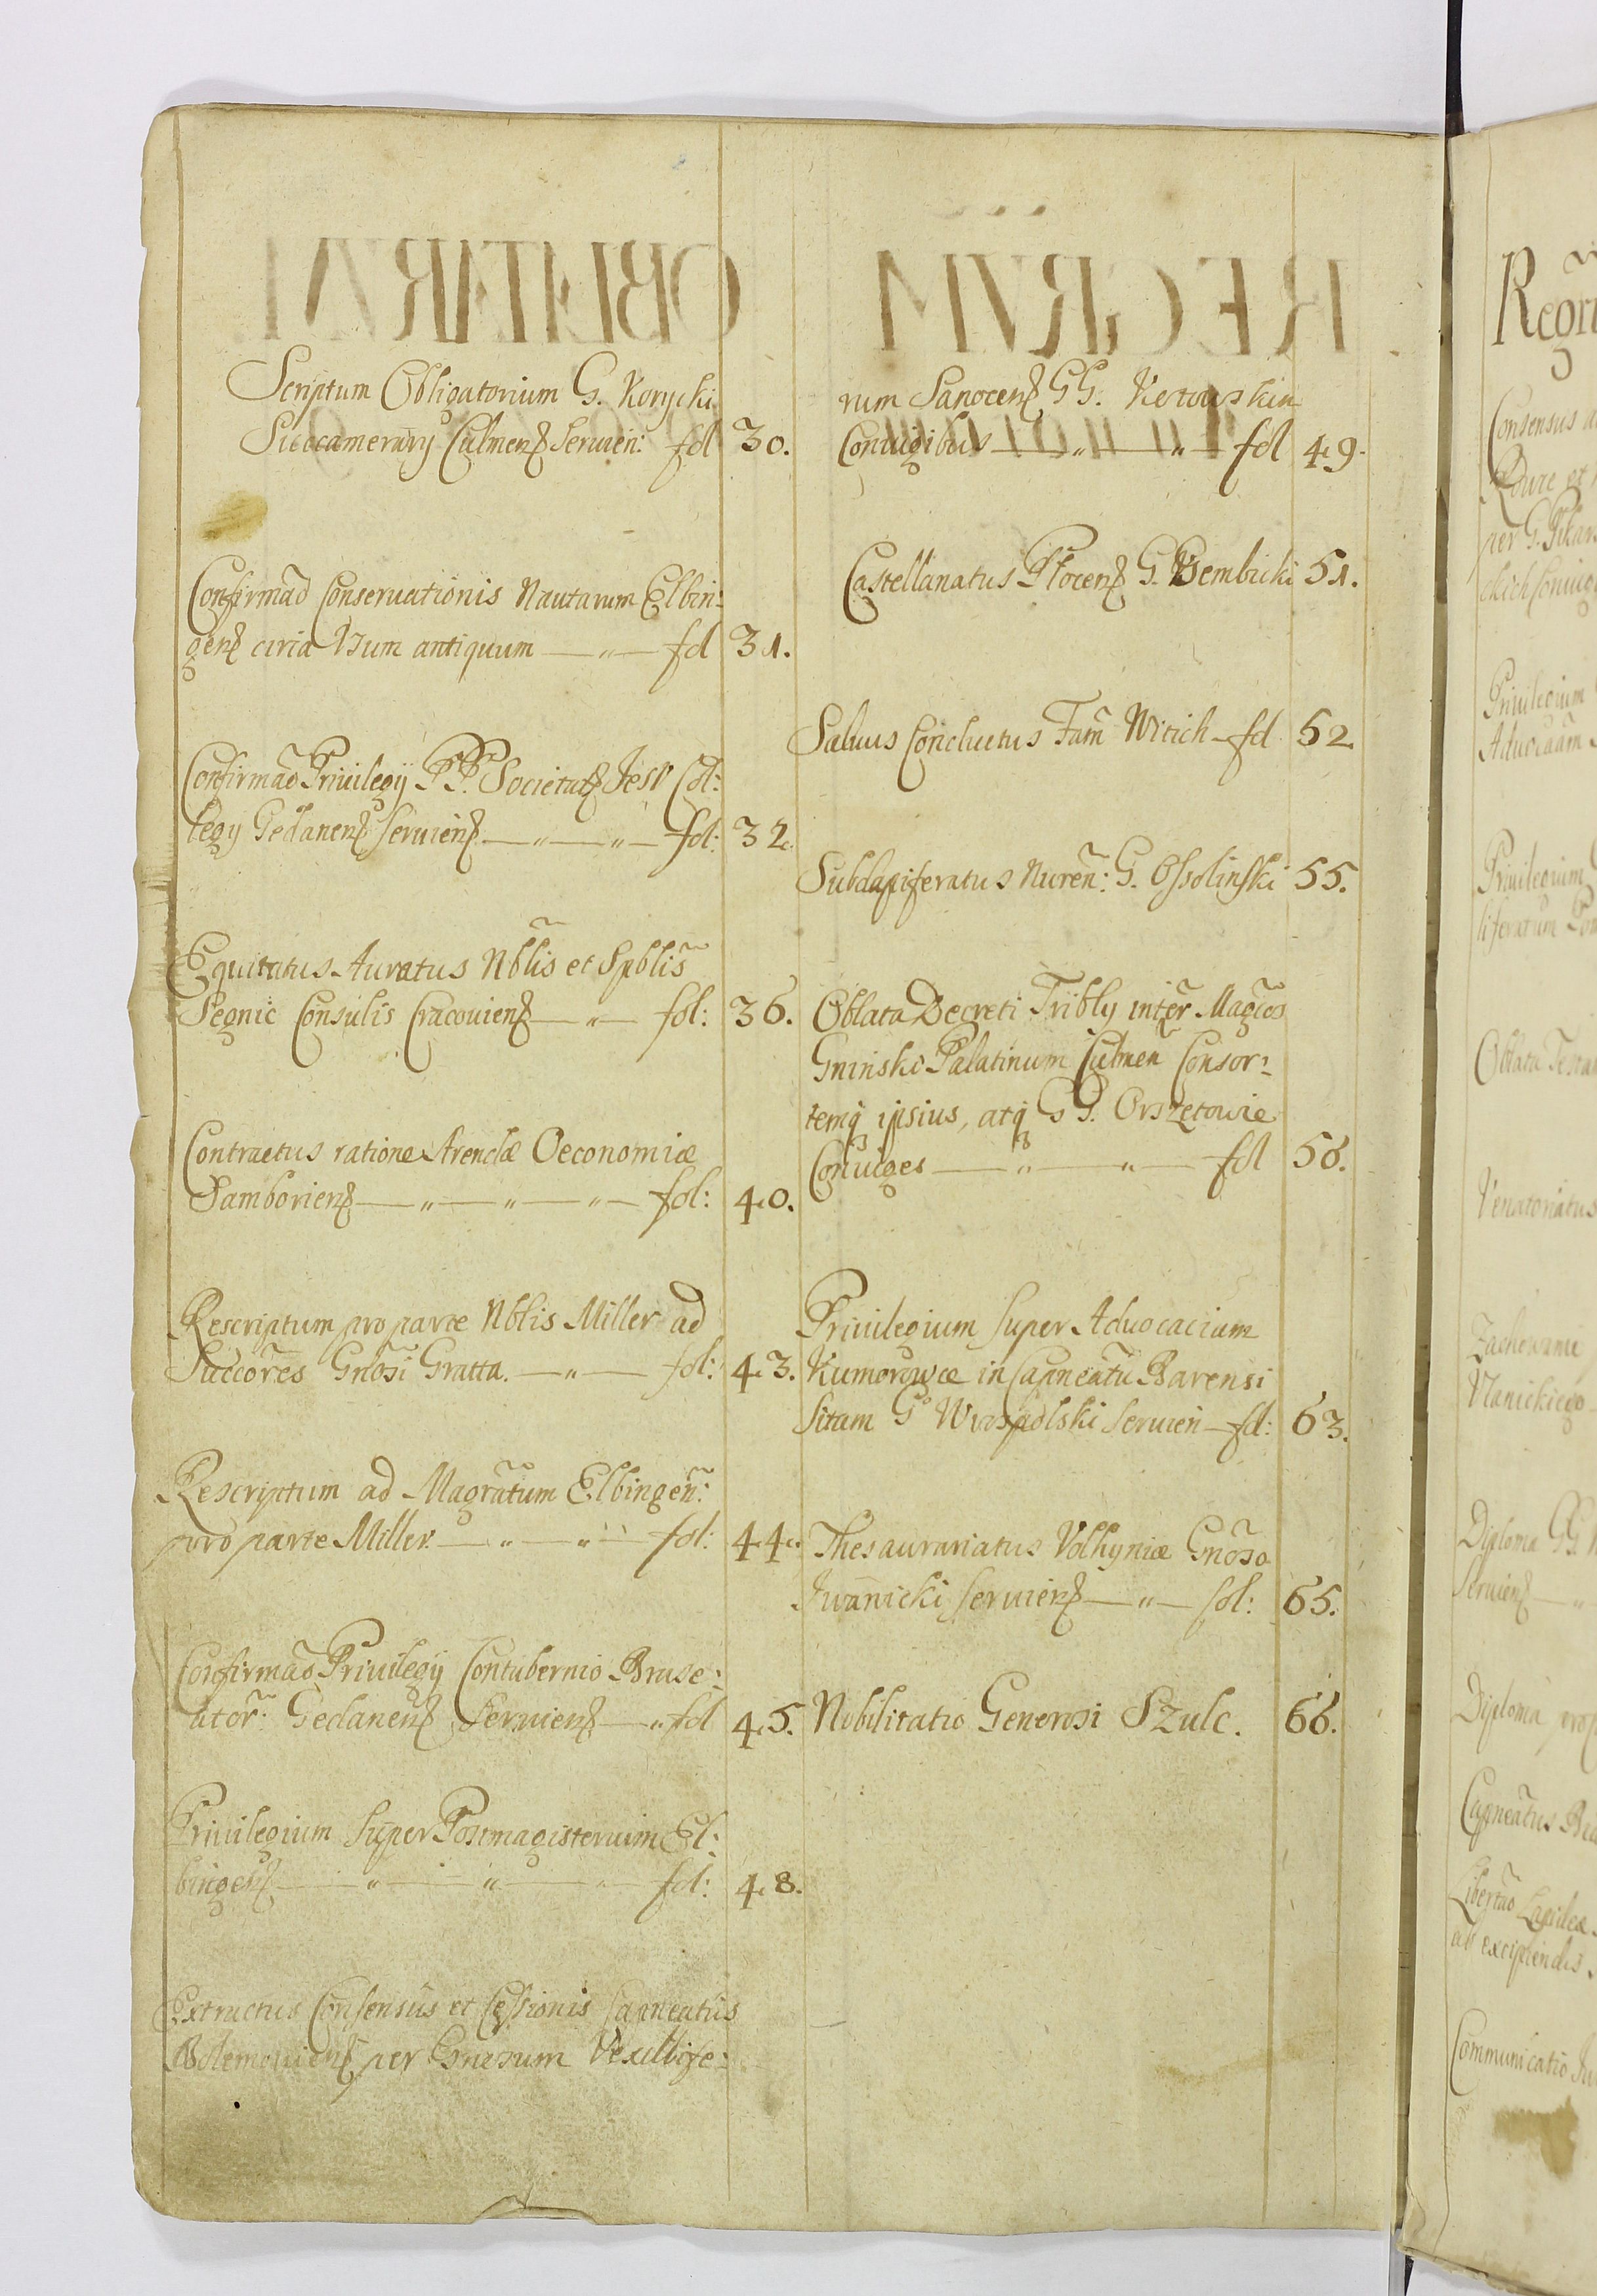 Scriptum Obligatorium G. Korycki
Succamerarÿ Culmens Servien: fol 30.
Confirmão Conservationis Nautarum Elbin:
gens circa Vsum antiquum fol 31.
Confirmão Privilegÿ P P. Societats Jesv Col:
legÿ Gedanens serviens fol: 32.
Equitatus Auratus Nblis et Spblis
Segnic Consulis Cracoviens fol: 36.
Contractus ratione Arendæ Oeconomiæ
Samboriens fol: 40.
Rescriptum pro parte Nblis Miller ad
Succores Gnosi Gratta. fol: 43.
Rescriptum ad Magratum Elbingen:
pro parte Miller. fol: 44.
Confirmão Privilegÿ Contubernio Brase:
ator: Gedanens Serviens fol 45.
Privilegium super Postmagisterium El:
bingens fol: 48.
Extractus Consensus et Cessionis Capneatus
Bolemoviens per Gnerum Vexillife:
rum Sanocens G G.
Coniugibus fol 49.
Castellanatus Plocens G. Dembicki 51.
Salvus Conductus Fam Witich fol 52
Subdapiferatus Nuren: G. Ossolinski 55.
Oblata Decreti Tribly inter Magcos
Gninski Palatinum Culmen Consor:
temq ipsius, atq G G. Orszetowie
Coniuges fol 56.
Privilegium super Advocaciam
Kumorowce in Capneatu Barensi
sitam Go Wyospolski servien fol: 63.
Thesaurariatus Volhyniæ Gnoso
Iwanicki serviens fol: 65.
Nobilitatio Generosi Szulc. 66.
Consensus
per G.
Privilegium
Privilegium
Oblata
Venatoriatus
Diploma G G.
Serviens
Diploma pro
Capneatus
ab excipiendis.
Communicatio